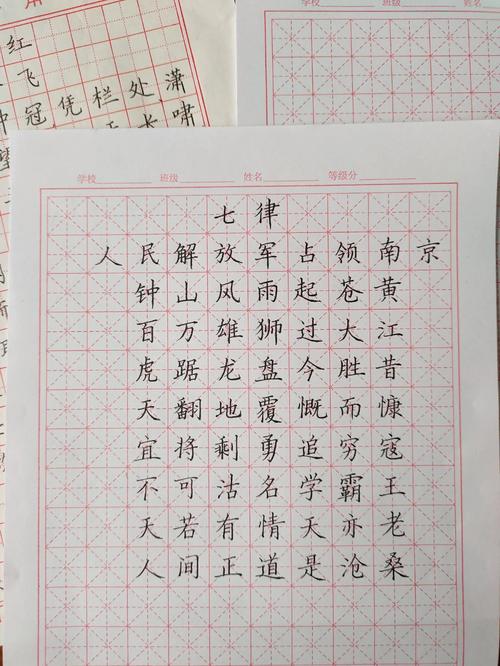 红
飞
冠凭栏处潇
长啸
学校 班级 姓名 等级分
七律
人民解放军占领南京
钟山风雨起苍黄
百万雄狮过大江
虎踞龙盘今胜昔
天翻地覆慨而慷
宜将剩勇追穷寇
不可沽名学霸王
天若有情天亦老
人间正道是沧桑